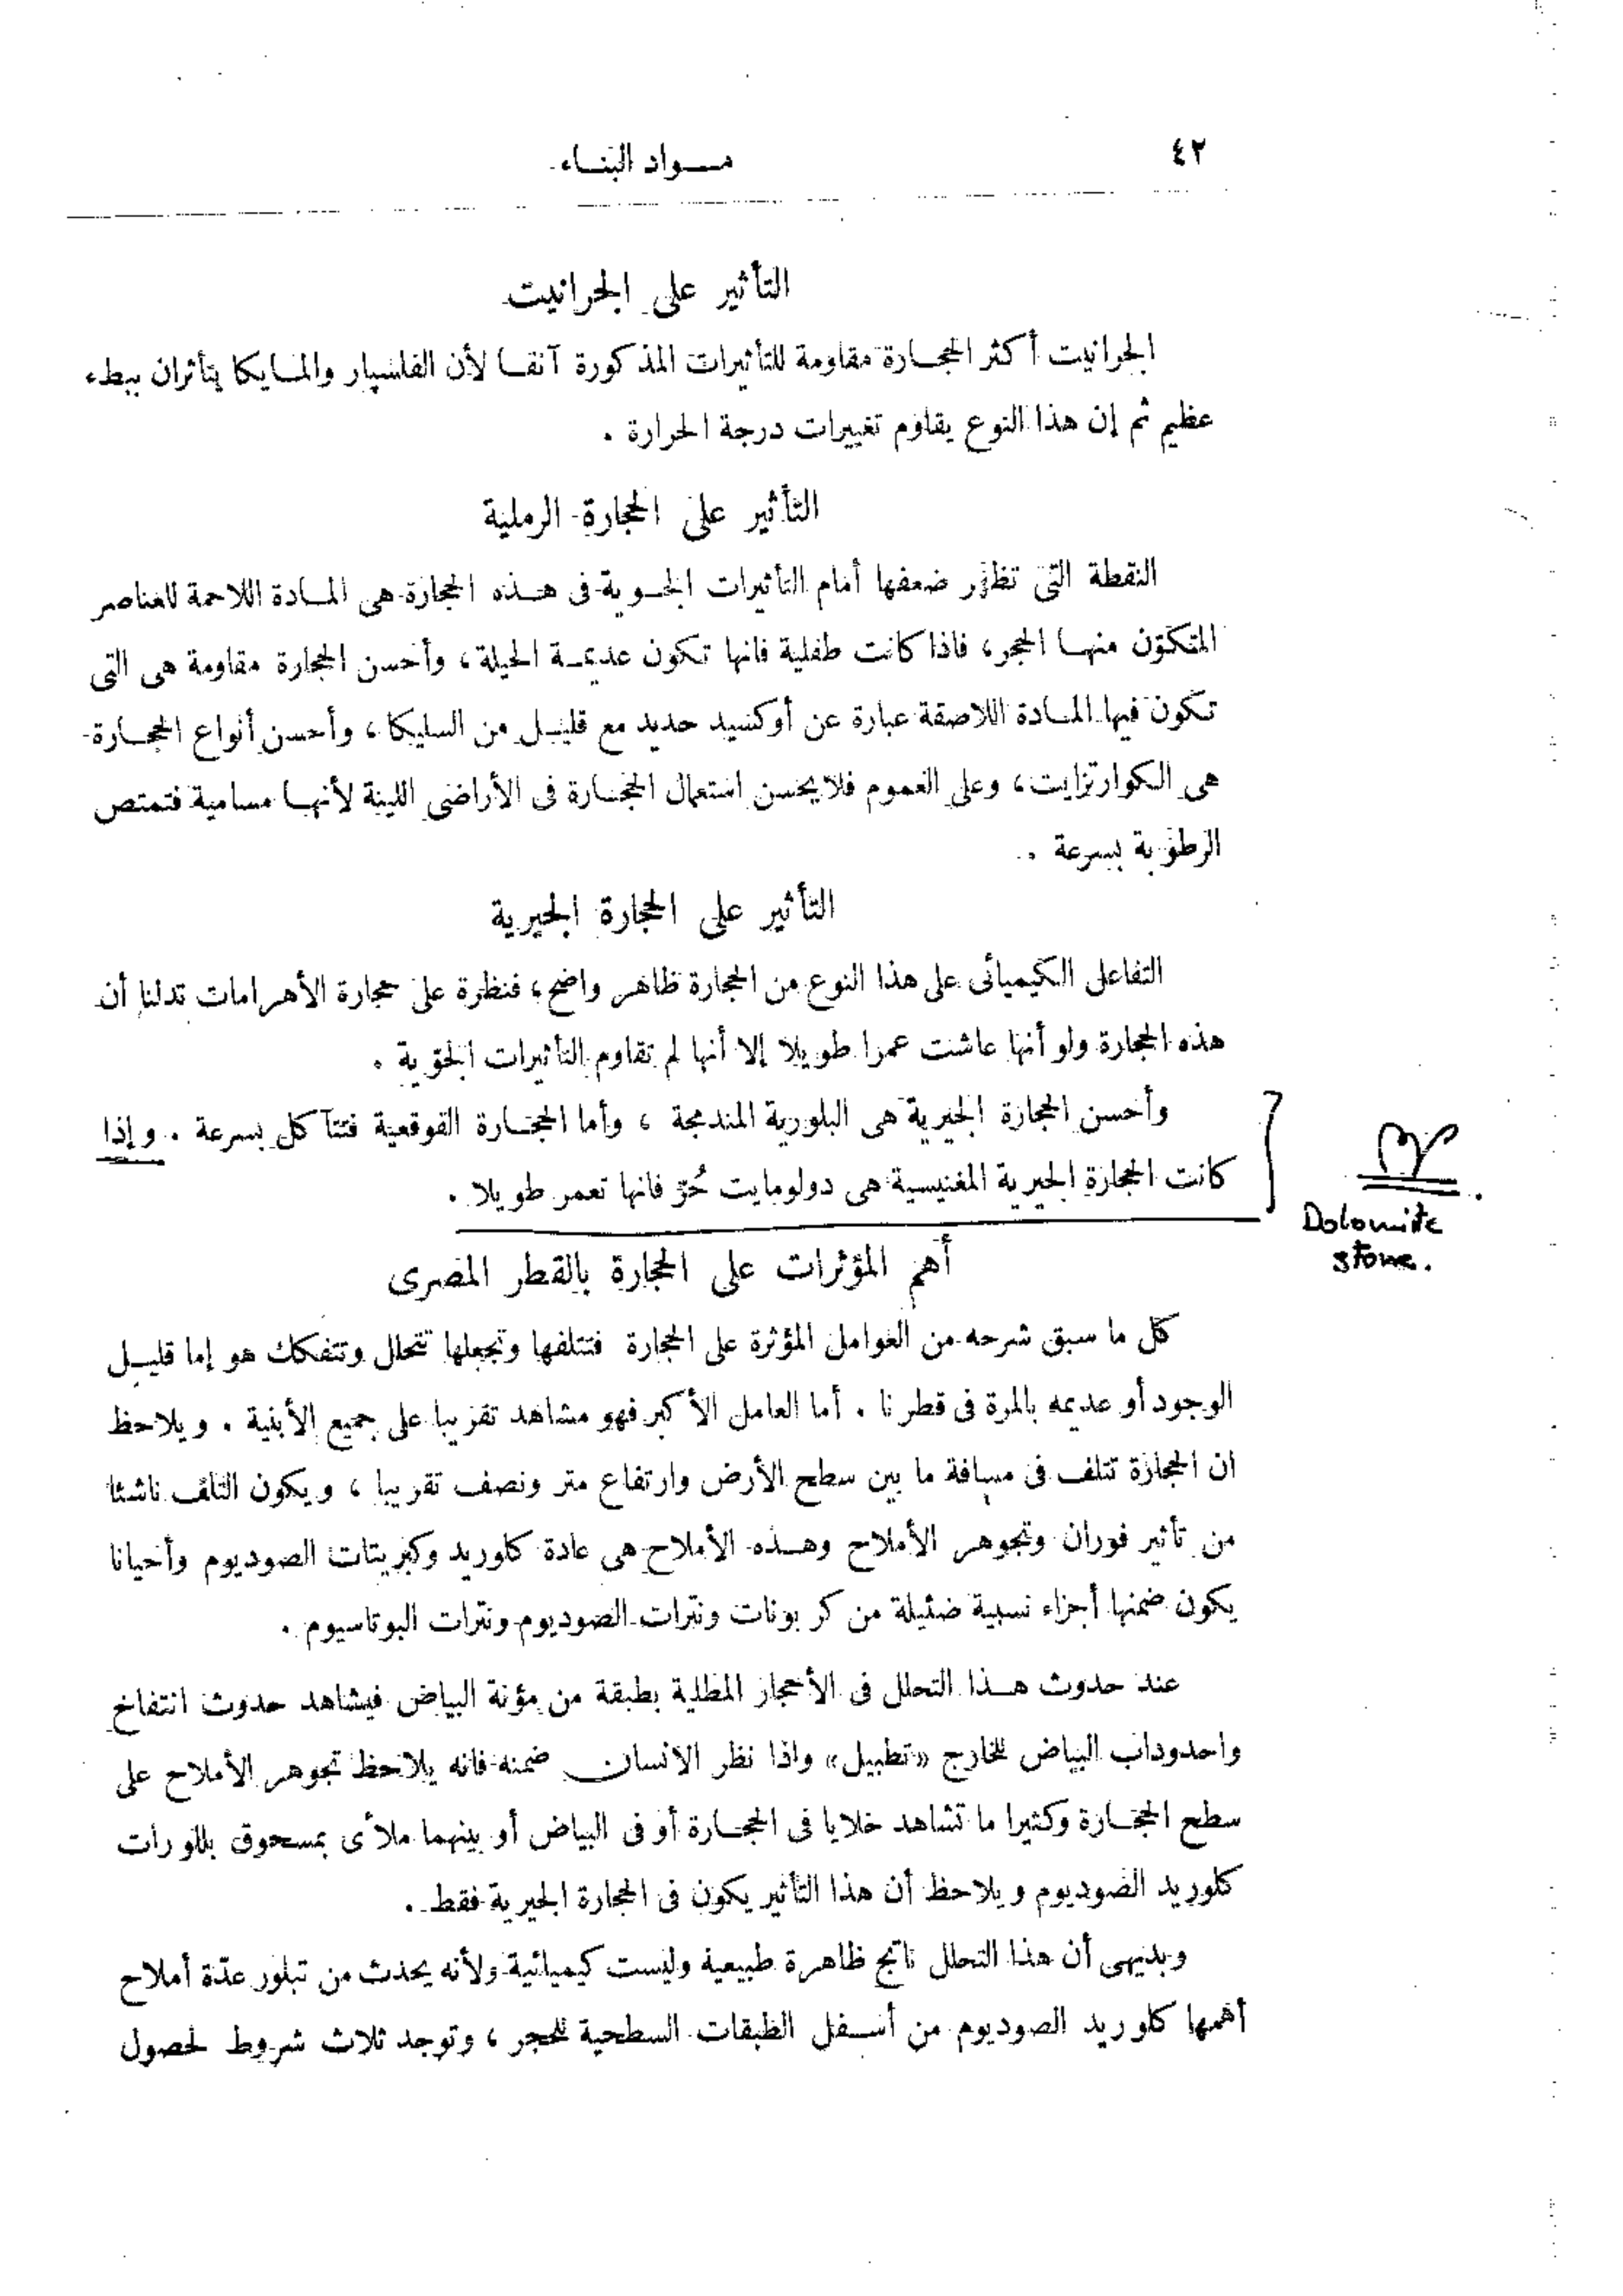 ٤٢
مـــواد البنــاء
التأثير على الجرانيت
الجرانيت أكثر الحجــارة مقاومة للتأثيرات المذكورة آنفــا لأن الفلسپار والمــايكا يتأثران ببطء
عظيم ثم إن هذا النوع يقاوم تغييرات درجة الحرارة .
التأثير على الحجارة الرملية
النقطة التى تظهر ضعفها أمام التأثيرات الجــوية فى هــذه الحجارة هى المــادة اللاحمة للعناصر
المتكوّن منهــا الحجر، فاذا كانت طفلية فانها تكون عديمــة الحيلة، وأحسن الحجارة مقاومة هى التى
تكون فيها المــادة اللاصقة عبارة عن أوكسيد حديد مع قليــل من السليكا، وأحسن أنواع الحجــارة
هى الكوارتزايت، وعلى العموم فلا يحسن استعمال الحجــارة فى الأراضى اللينة لأنهــا مسامية فتمتص
الرطوبة بسرعة .
التأثير على الحجارة الجيرية
التفاعل الكيميائى على هذا النوع من الحجارة ظاهر واضح، فنظرة على حجارة الأهرامات تدلنا أن
هذه الحجارة ولو أنها عاشت عمرا طويلا إلا أنها لم تقاوم التأثيرات الجوّية .
وأحسن الحجارة الجيرية هى البلورية المندمجة ، وأما الحجــارة القوقعية فتتآكل بسرعة . وإذا
كانت الحجارة الجيرية المغنيسية هى دولومايت حُرّ فانها تعمر طويلا .
Dolomite
stone.
أهم المؤثرات على الحجارة بالقطر المصرى
كل ما سبق شرحه من العوامل المؤثرة على الحجارة فتتلفها وتجعلها تتحلل وتتفكك هو إما قليــل
الوجود أو عديمه بالمرة فى قطرنا . أما العامل الأكبر فهو مشاهد تقريبا على جميع الأبنية . ويلاحظ
ان الحجارة تتلف فى مسافة ما بين سطح الأرض وارتفاع متر ونصف تقريبا ، ويكون التلف ناشئا
من تأثير فوران وتجوهر الأملاح وهــذه الأملاح هى عادة كلوريد وكبريتات الصوديوم وأحيانا
يكون ضمنها أجزاء نسبية ضئيلة من كربونات ونترات الصوديوم ونترات البوتاسيوم .
عند حدوث هــذا التحلل فى الأحجار المطلية بطبقة من مؤنة البياض فيشاهد حدوث انتفاخ
واحدوداب البياض للخارج «تطبيل» واذا نظر الانسان ضمنه فانه يلاحظ تجوهر الأملاح على
سطح الحجــارة وكثيرا ما تشاهد خلايا فى الحجــارة أو فى البياض أو بينهما ملأى بمسحوق بللورات
كلوريد الصوديوم ويلاحظ أن هذا التأثير يكون فى الحجارة الجيرية فقط .
وبديهى أن هذا التحلل ناتج ظاهرة طبيعية وليست كيميائية ولأنه يحدث من تبلور عدّة أملاح
أهمها كلوريد الصوديوم من أســفل الطبقات السطحية للحجر ، وتوجد ثلاث شروط لحصول